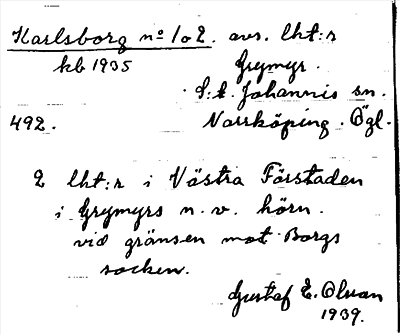 Karlsborg nº 1 o 2. avs. lht:r
kb 1935 Grymyr.
S:t Johannis sn.
492. Norrköping. Ögl.
2 lht:r i Västra Förstaden
i Grymyrs n.v. hörn.
vid gränsen mot Borgs
socken.
Gustaf E. Olsson
1939.